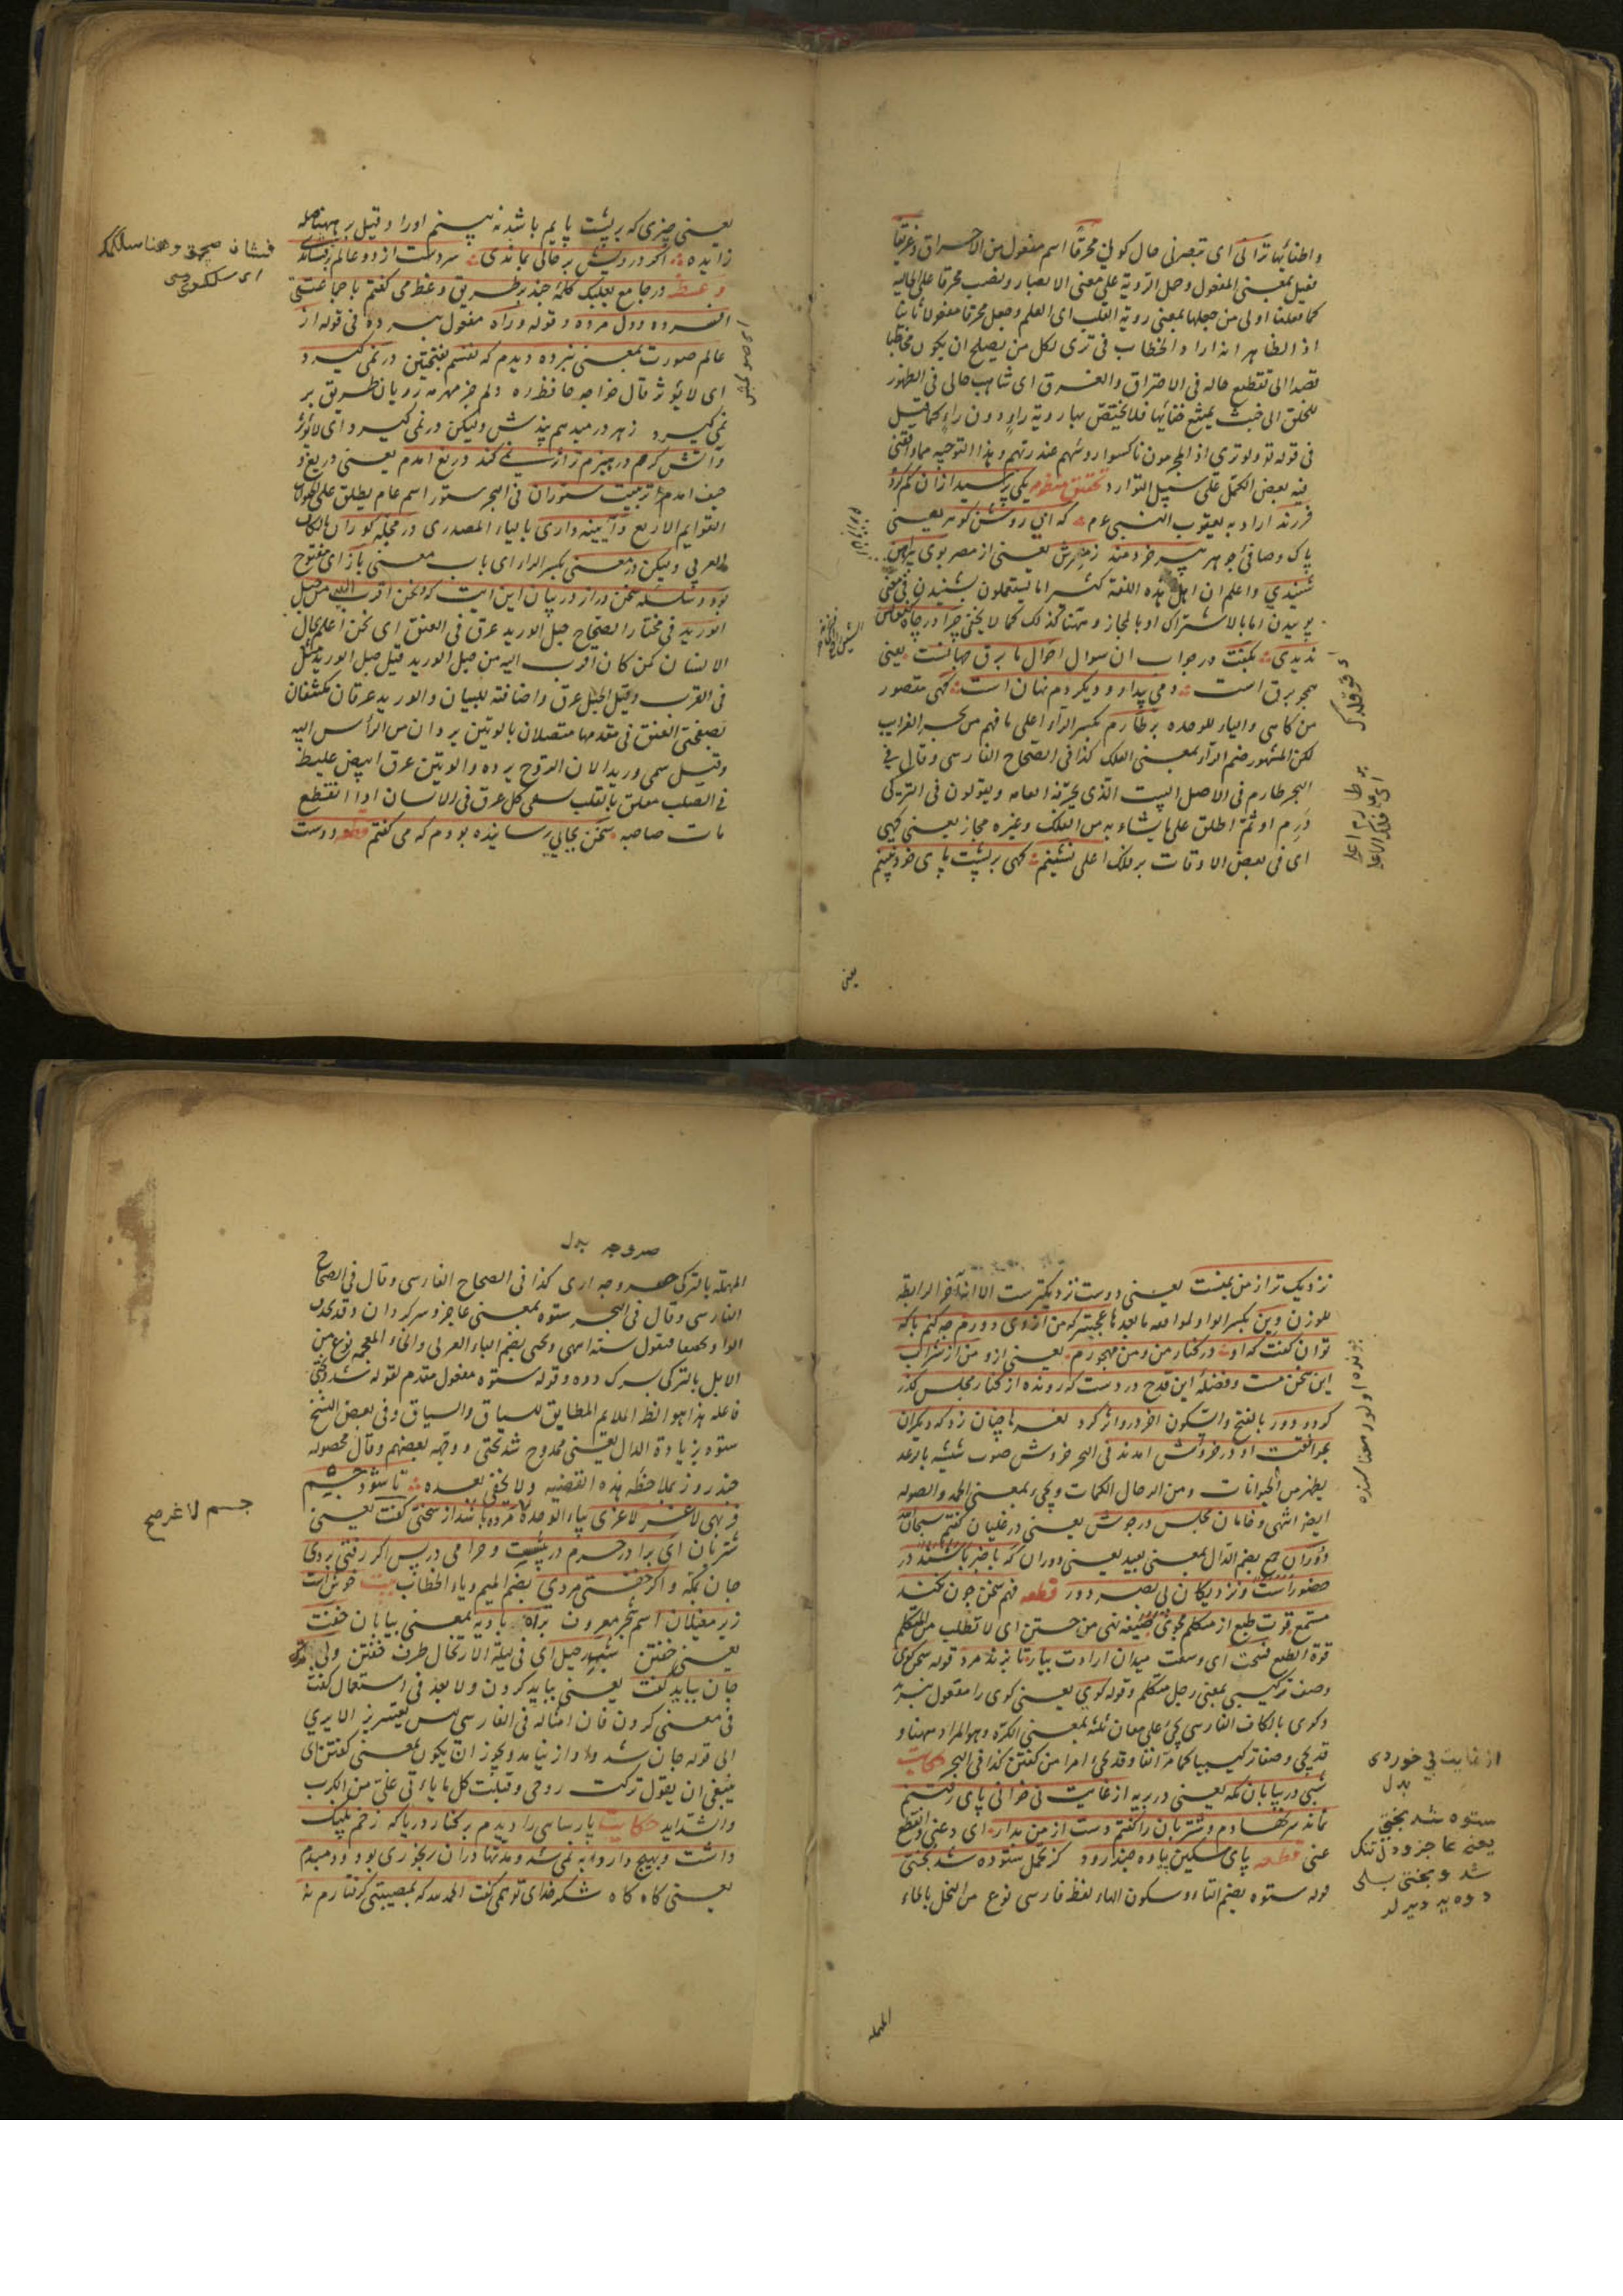 واطفائها ترانی ای تبصرنی حال کونی محرقا اسم مفعول من الاحراق وغریقا
فعیل بمعنی المفعول وحمل الرؤیة علی معنی الابصار ونصب محرقا علی الحالیة
کما فعلنا اولی من جعلها بمعنی رؤیة القلب ای العلم وجعل محرقا مفعولا ثانیا
اذ الظاهر انه اراد والخطاب فی تری لکل من یصلح ان یکون مخاطبا
قصدا الی تفظیع حاله فی الاحتراق والغرق ای تناهت حالی فی الظهور
للخلق الی حیث یمتنع خفائها فلا یختص بها رؤیة راء دون راء کما قیل
فی قوله تع ولو تری اذ المجرمون ناکسوا رؤسهم عند ربهم وهذا التوجیه مما وافقنی
فیه بعض الکمل علی سبیل التوارد منظومه یکی پرسید ازان گم کرده
فرزند اراد به یعقوب النبی عم که ای روشن گوهر یعنی
پاک وصافی جوهر پیر خردمند ز مصرش یعنی از مصر بوی پیراهن
شنیدی واعلم ان اهل هذه اللغة کثیرا ما یستعملون شنیدن فی معنی
بوییدن اما بالاشتراک او بالمجاز وههنا کذلک کما لا یخفی چرا در چاه کنعانش
ندیدی بگفت در جواب ان سوال احوال ما برق جهانست یعنی
همچو برق است دمی پیدا و دیگر دم نهان است گهی مقصور
من گاهی والیاء للوحدة بر طارم بکسر الراء اعلی ما فهم من بحر الغرایب
لکن المشهور ضم الراء بمعنی الفلک کذا فی الصحاح الفارسی وقال فی
البحر طارم فی الاصل البیت الذی یحرفه العامه ویقولون فی الترکی
درم او ثم اطلق علی ما یشابه من الفلک وغیره مجاز یعنی گهی
ای فی بعض الاوقات بر فلک اعلی نشینم گهی بر پشت پای خود نبینم
یعنی
یعنی چیزی که بر پشت پایم باشد نه بینم اورا وقیل بر ههنا صله
زایده اگر درویش بر حالی بماندی سر دست از دو عالم بر فشاندی
وعظ در جامع بعلبک کلمهٔ چند بر طریق وعظ می گفتم با جماعتی
افسرده ودل مرده وقوله وراه مفعول نبرده فی قوله از
عالم صورت بمعنی نبرده دیدم که نفسم بفتحتین در نمی گیرد
ای لا یؤثر قال خواجه حافظ ره دلم جز مهر مه رویان طریق بر
نمی گیرد ز هر در میدهم پندش ولیکن در نمی گیرد ای لا یؤثر
وآتش گرمم در هیزم تر اثر نمی کند دریغ آمدم یعنی دریغ و
حیف آمدم تربیت ستوران فی البحر ستور اسم عام یطلق علی
القوایم الاربع وآیینه داری بالیاء المصدری در محله کوران بالکاف
العربی ولیکن در معنی بکسر الراء ای باب معنی باز ای مفتوح
بود وسلسله سخن دراز در بیان این آیت که ونحن اقرب الیه من حبل
الورید فی مختار الصحاح حبل الورید عرق فی العنق ای نحن اعلم بحال
الانسان ممن کان اقرب الیه من حبل الورید قیل حبل الورید مثل
فی القرب وقیل الحبل عرق واضافته للبیان والوریدان عرقان مکتنفان
بصفحتی العنق فی مقدمها متصلان بالوتین یردان من الرأس الیه
وقیل سمی وریدا لان الروح یرده والوتین عرق ابیض غلیظ
فی الصلب معلق بالقلب یسقی کل عرق فی الانسان اذا انقطع
مات صاحبه سخن بجایی رسانیده بودم که می گفتم قطعه دوست
نزدیک تر از من بمنست یعنی دوست نزدیکترست
للوزن وین بکسر الواو لما بعدها عجبتر که من از وی دورم چه کنم با که
توان گفت که او در کنار من ومن مهجورم یعنی از و من از شراب
این سخن مست وفضلهٔ این قدح در دست که رونده از کنار مجلس گذر
کرد ودور بالفتح والسکون آخر درو اثر کرد نعره چنان زد که دیگران
بموافقت او در خروش آمدند فی البحر خروش صوت
یظهر من الحیوانات ومن الرجال
ایضا انتهی وخامان مجلس در جوش یعنی در غلیان گفتم سبحان الله
دوران جمع بضم الدال بمعنی بعید یعنی دوران که با خبر باشند در
حضور است ونزدیکان بی بصر دور قطعه فهم سخن چون نکند
مستمع قوت طبع از متکلم مجوی صیغه نهی من جستن ای لا تطلب من المتکلم
قوة الطبع فسحت ای وسعت میدان ارادت بیار تا بزند مرد قوله سخن گوی
وصف ترکیبی بمعنی رجل متکلم وقوله گوی یعنی گوی را مفعول بزند
وگوی بالکاف الفارسی یجئ علی معان ثلثة بمعنی الکرة وهو المراد ههنا و
قد یجئ وصفا ترکیبیا کما مر آنفا وقد یجئ امرا من گفتن کذا فی البحر حکایت
شبی در بیابان مکه یعنی در بریه از غایت بی خوابی پای رفتنم
نماند سر بنهادم وشتربان را گفتم دست از من بدار ای دعنی وانقطع
عنی قطعه پای مسکین پیاده چند رود کز تحمل ستوه شد بختی
قوله ستوه بضم التاء وسکون الهاء لفظ فارسی نوع من
المهملة
المهملة بالترکی کذا فی الصحاح الفارسی وقال فی الصحاح
الفارسی وقال فی البحر ستوه بمعنی عاجز وسرگردان وقد یحذف
الواو تخفیفا فیقول سته انتهی وبختی بضم الباء العربی والخاء المعجمه نوع من
الابل بالترکی بسرک دوه وقوله ستوه مفعول مقدم لقوله شد وبختی
فاعله هذا هو الملایم المطابق للسیاق والسباق وفی بعض النسخ
ستوده بزیادة الدال یعنی ممدوح شد بختی ووجهه بعضهم وقال
چند روز بملاحظة هذه القضیه ولا یخفی بعده تا شود جسم
فربهی لاغر لاغری بیاء الوحدة مرده باشد از سختی گفت یعنی
شتربان ای برادر حرم در پیشست وحرامی در پس اگر رفتی بردی
جان بمکه واگر خفتی مردی بضم المیم ویاء الخطاب بیت خوش است
زیر مغیلان اسم شجر معروف براه بادیه بمعنی بیابان خفت
یعنی خفتن شب رحیل ای فی لیلة الارتحال ظرف خفتن ولی ترک
جان بباید گفت یعنی بباید کردن ولا بعد فی استعمال گفت
فی معنی کردن فان امثاله فی الفارسی لیس بعزیز الا یری
الی قوله جان شد واز نیامد ویجوز ان یکون بمعنی گفتن ای
ینبغی ان یقول ترکت روحی وقبلت کل ما یأتی علی من الکرب
والشداید حکایت پارسایی را دیدم بر کنار دریا که زخم پلنگ
داشت وبهیچ دارو به نمی شد ومدتها دران رنجوری بود ودمبدم
یعنی گاه گاه شکر خدای تع همی گفت الحمد لله که بمصیبتی گرفتارم نه
جسم لاغر صح
از غایت بی خوردی
بدل
ستوه شد بختی
یعنی عاجز ودل تنک
شد وبختی بسلی
دوه یه دیرلر